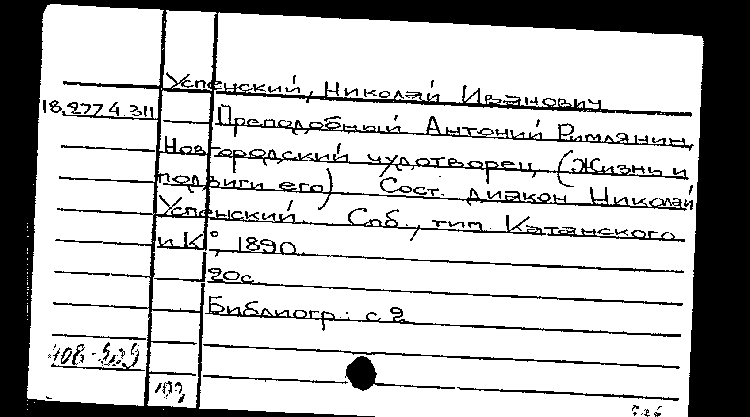 Успенский, Николай Иванович
18.277.4.311 Преподобный Антоний Римлянин,
Новгородский чудотворец (Жизнь и
подвиги его) Сост. диакон Николай
Успенский. Спб, тип Катанского
и К°, 1890.
20с.
Библиогр: с 2
102